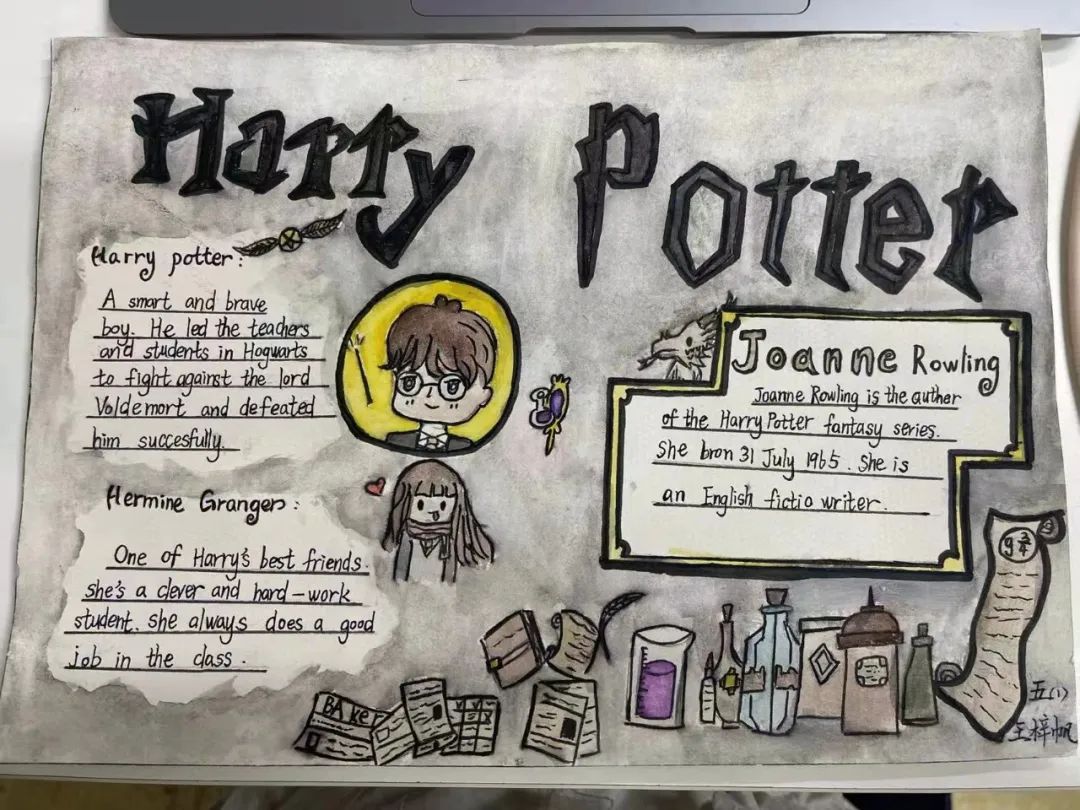 Harry Potter
Harry potter:
A smart and brave
boy. He led the teachers
and students in Hogwarts
to fight against the lord
Voldemort and defeated
him succesfully.
Hermine Granger:
One of Harry's best friends.
she's a clever and hard-work
student. She always does a good
job in the class.
Joanne Rowling
Joanne Rowling is the auther
of the Harry Potter fantasy series.
She bron 31 July 1965. She is
an English fictio writer.
9 3/4
BAKer
五(1)
王梓帆